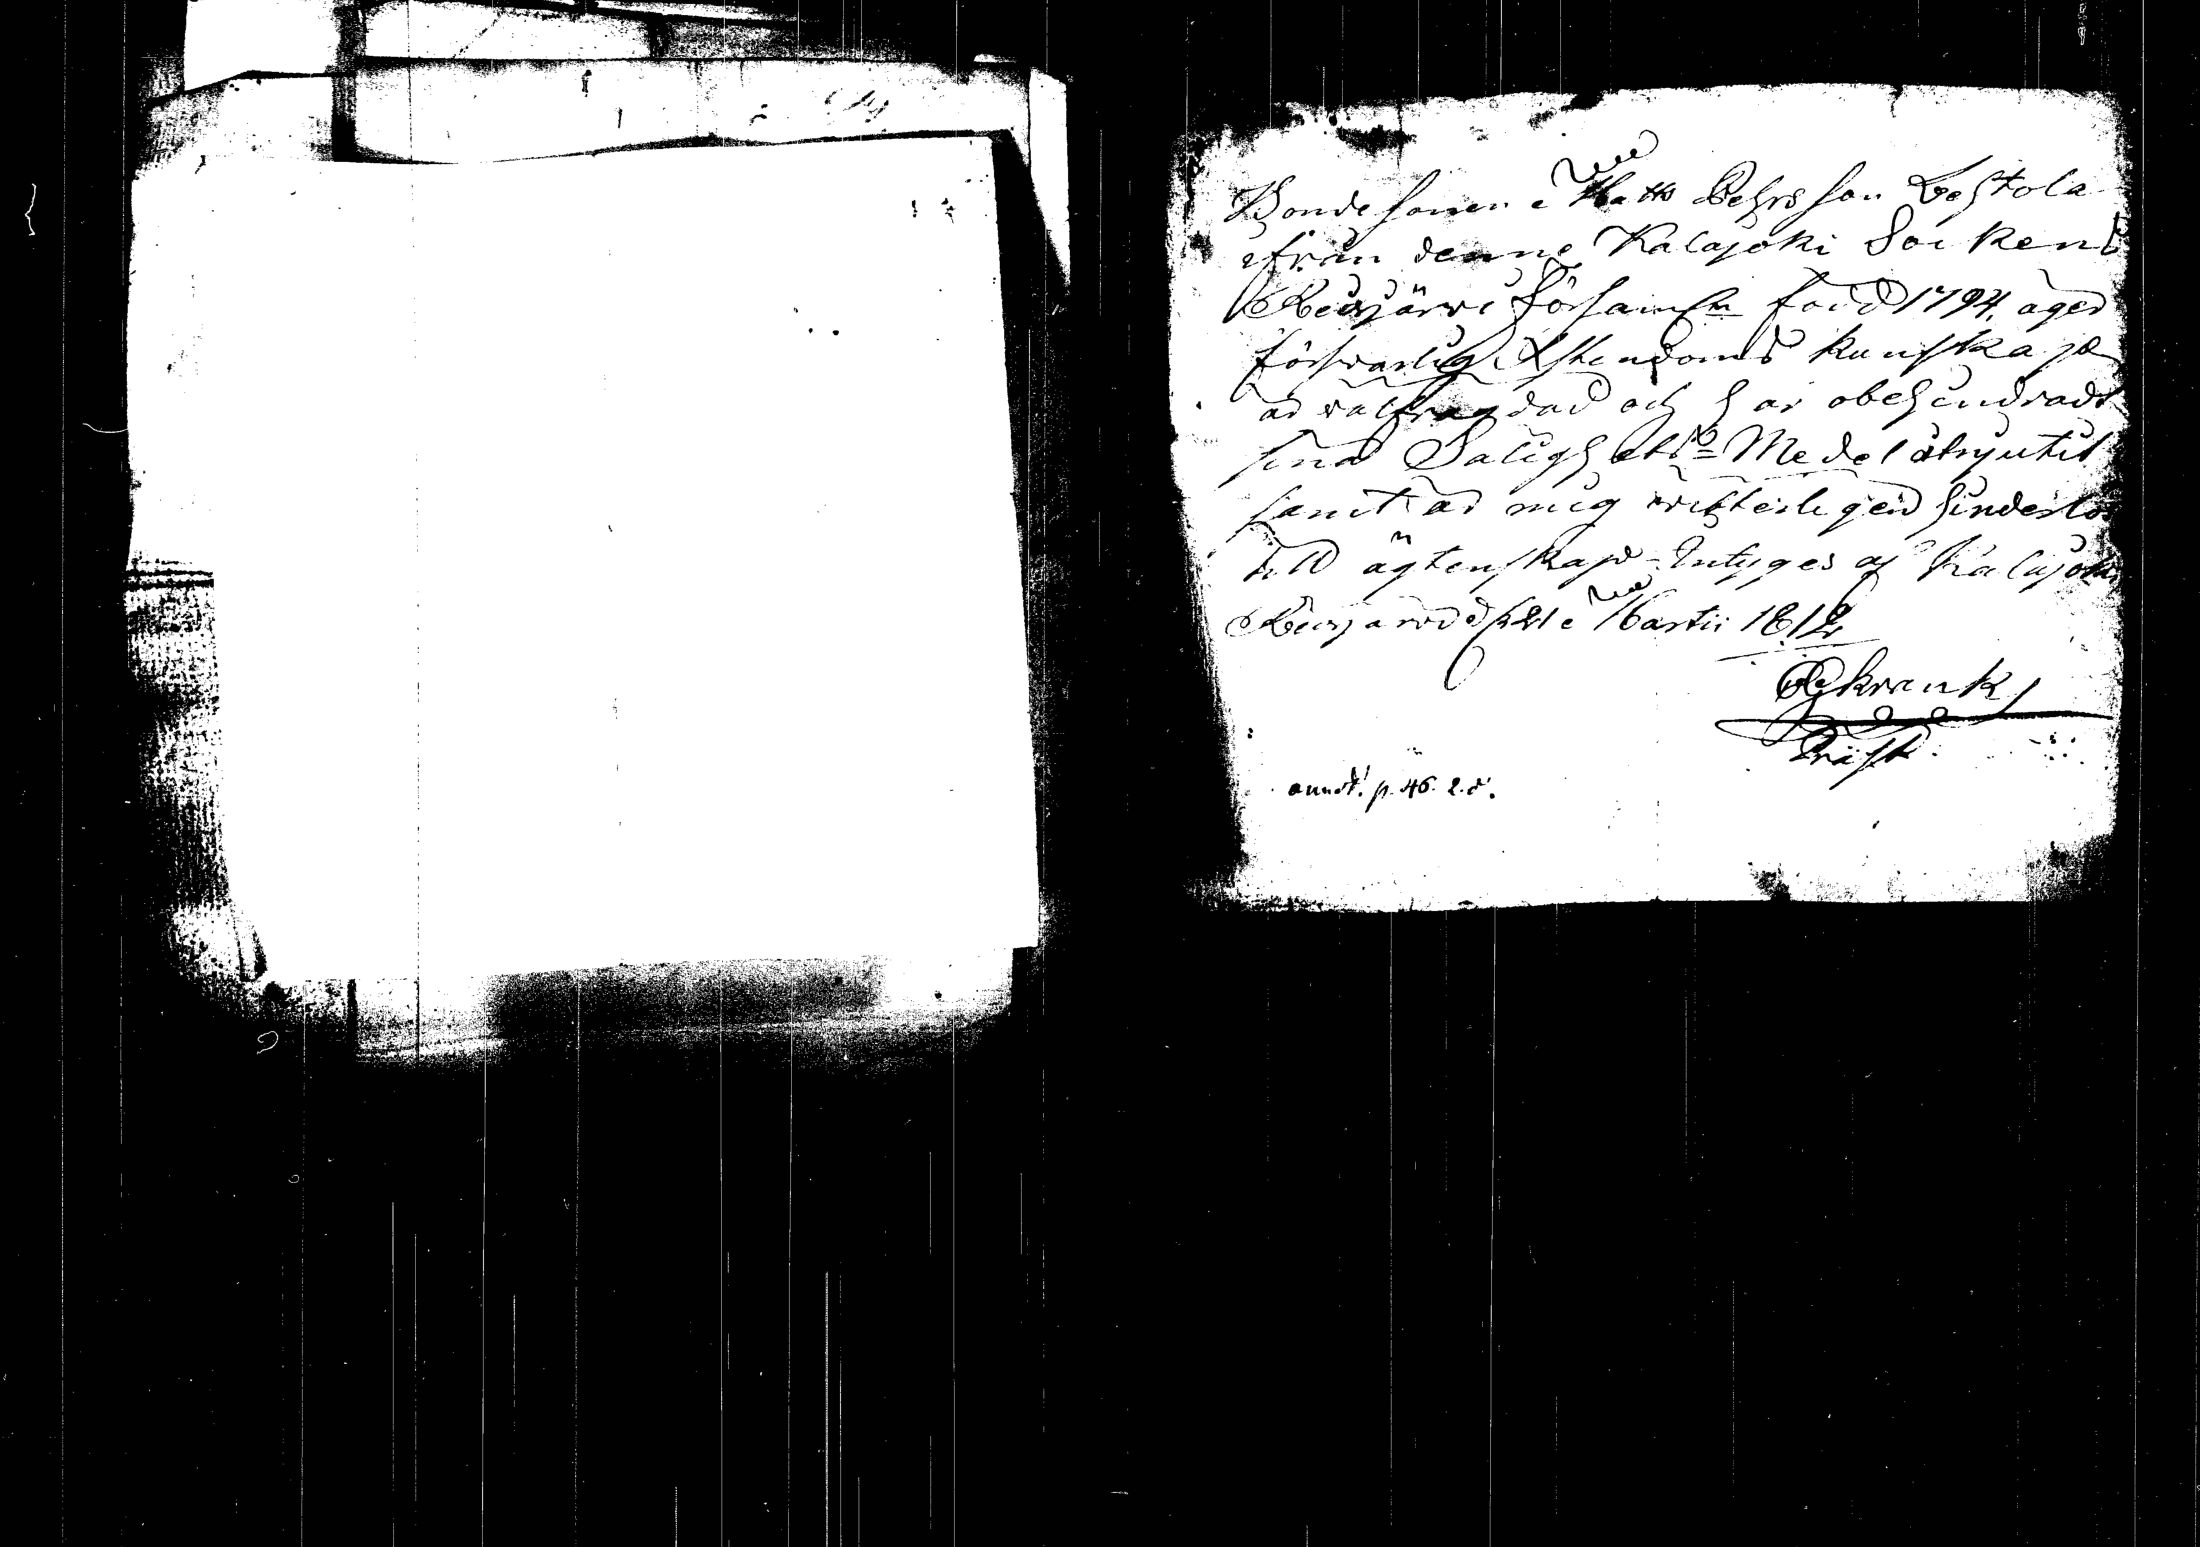 Bondesonen Matts Pehrsson Lestola
ifrån denne Kalajoki Sockens
Reisjärvi Församl:n född 1794, äger
försvarlig Christendoms kunskap
är välfrägdad och har obehindradt
sina Salighets Medel åtnjutit
samt är mig vitterligen hinderlös
till ägtenskap Intyges af Kalajoki
Reisjärvi d. 21 Martii 1812
Schrank
Präst
annot. p. 46. 2. d.